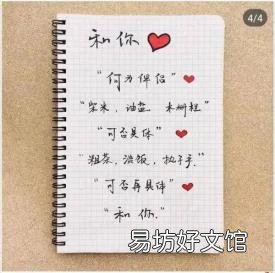 4/4
和你
“何为伴侣”
“柴米，油盐 木栅栏”
“可否具体”
“粗茶，淡饭，执子手.”
“可否再具体”
“和你.”
易坊好文馆